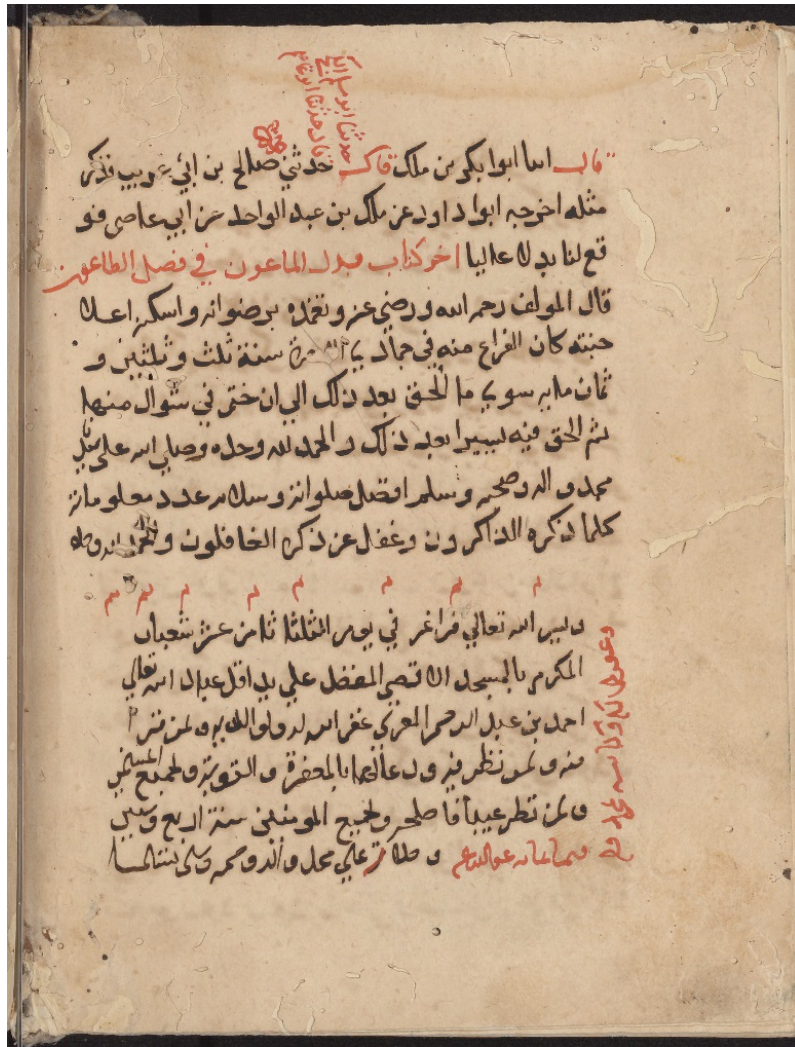 قال انبا ابوا بكر بن ملك قال حدثني صالح بن ابي عريب فذكر
مثله اخرجه ابوا داود عن ملك بن عبد الواحد عن ابي عاصم فو
قع لنا بدلا عاليا اخر كتاب بذل الماعون في فضل الطاعون
قال المولف رحمه الله ورضي عنه وتغمده برضوانه واسكنه اعلا
جنته كان الفراغ منه في جمادي سنة ثلث وثلثين و
ثمان مايه سوي ما الحق بعد ذلك الي ان ختم في شوال منها
ثم الحق فيه يسيرا بعد ذلك والحمد لله وحده وصلي الله علي سيدنا
محمد واله وصحبه وسلم افضل صلواته وسلامه عدد معلوماته
كلما ذكره الذاكرون وغفل عن ذكره الغافلون والحمد لله وحده
ويسر الله تعالي فراغه في يوم الثلثا ثامن عشر شعبان
المكرم بالمسجد الاقصي المفضل علي يد اقل عباد الله تعالي
احمد بن عبد الرحمن غفر الله له ولوالديه ولمن
منه ولمن نظر فيه ودعا لهما بالمغفرة والتوبة ولجميع المسلمين
ولمن نظر عيبا فاصلحه ولجميع المومنين سنة اربع وستين
وثمانمائه وصلاته علي محمد واله وصحبه وسلم تسليما
حدثنا ابو مسلم
قال حدثنا ابو عاصم